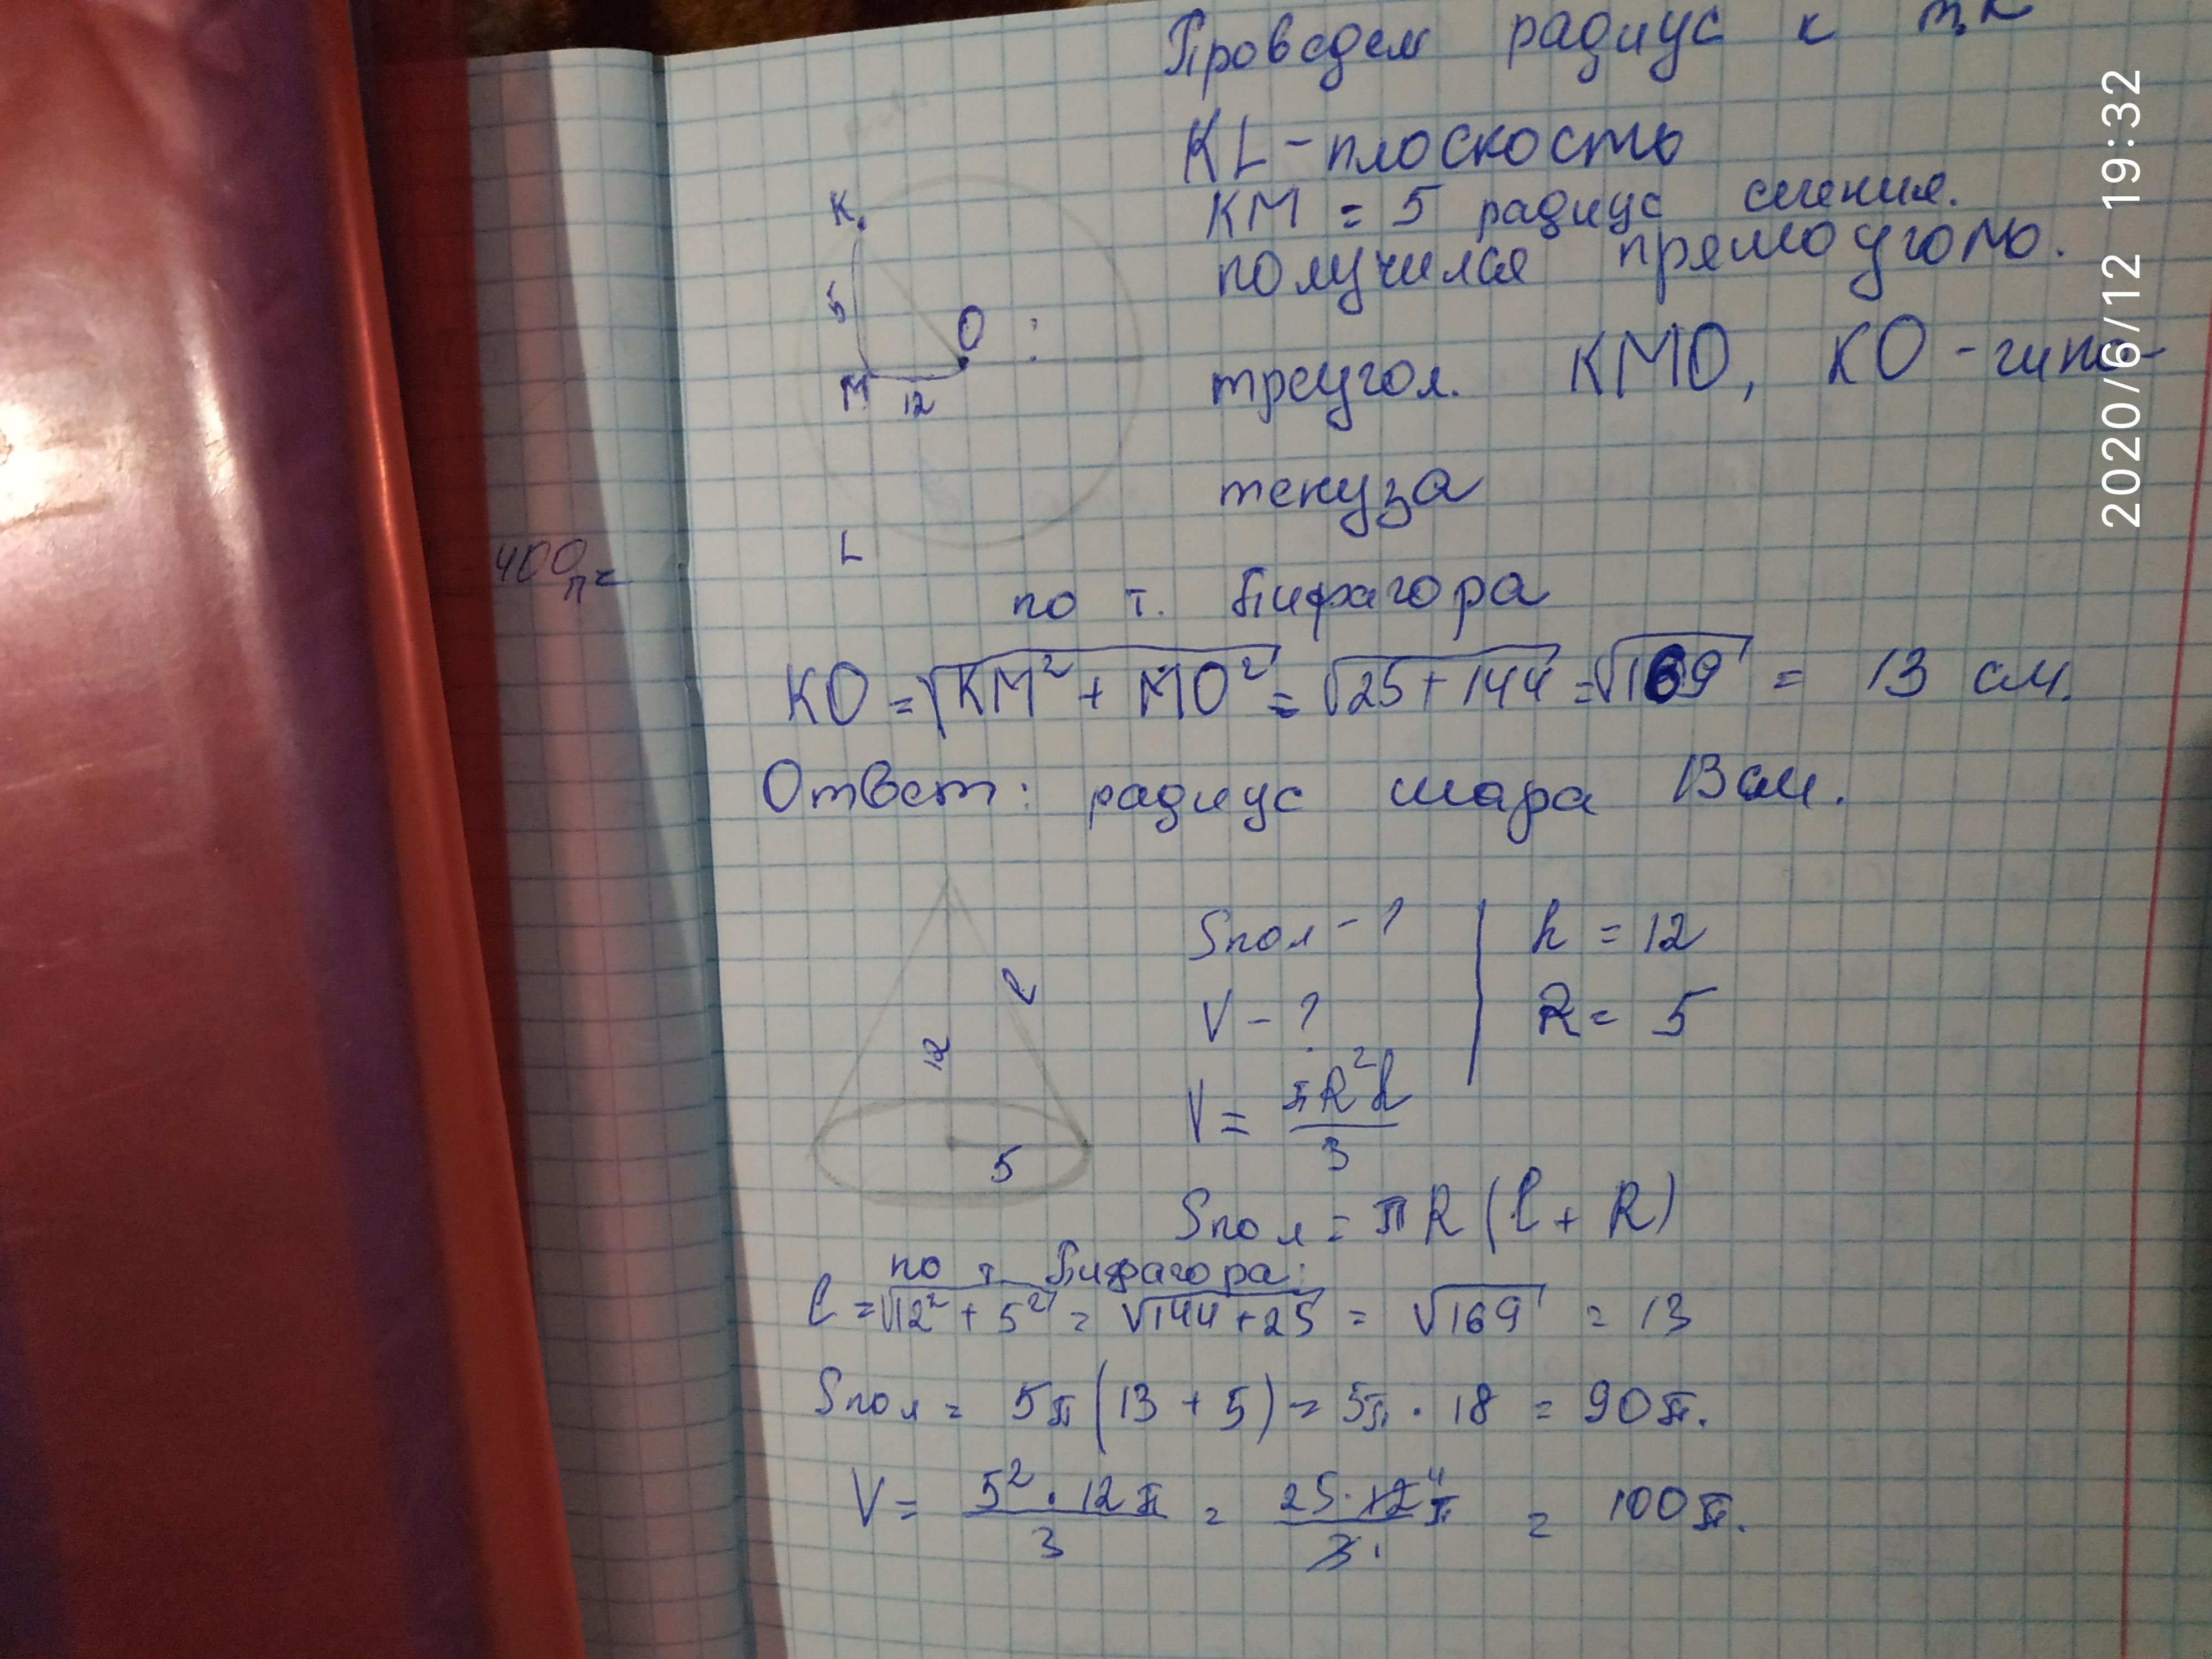 Проведем радиус к т.К
KL - плоскость
KM = 5 радиус сечения.
получился прямоуголь.
треугол. KMO, KO - гипо-
тенуза
K
5
O
M
12
L
400π =
по т. Пифагора
KO = √KM² + MO² = √25 + 144 = √169 = 13 см.
Ответ: радиус шара 13 см.
Sпол - ?
h = 12
V - ?
R = 5
l
12
5
V = πR²h / 3
Sпол = πR (l + R)
по т. Пифагора:
l = √12² + 5² = √144 + 25 = √169 = 13
Sпол = 5π (13 + 5) = 5π · 18 = 90π.
V = 5² · 12π / 3 = 25 · 12 4 π / 3 1 = 100π.
2020/6/12 19:32